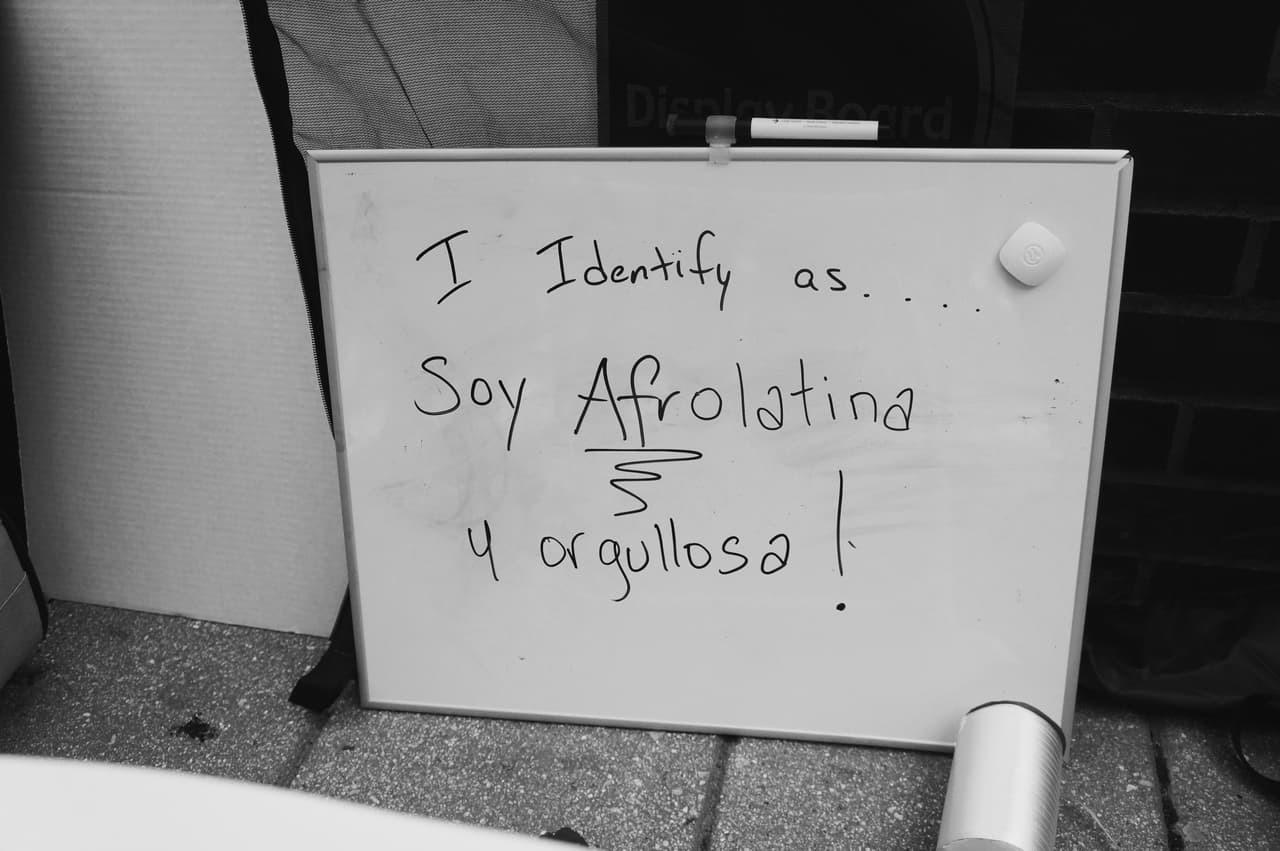 Display Board
I Identify as.....
Soy Afrolatina
y orgullosa!